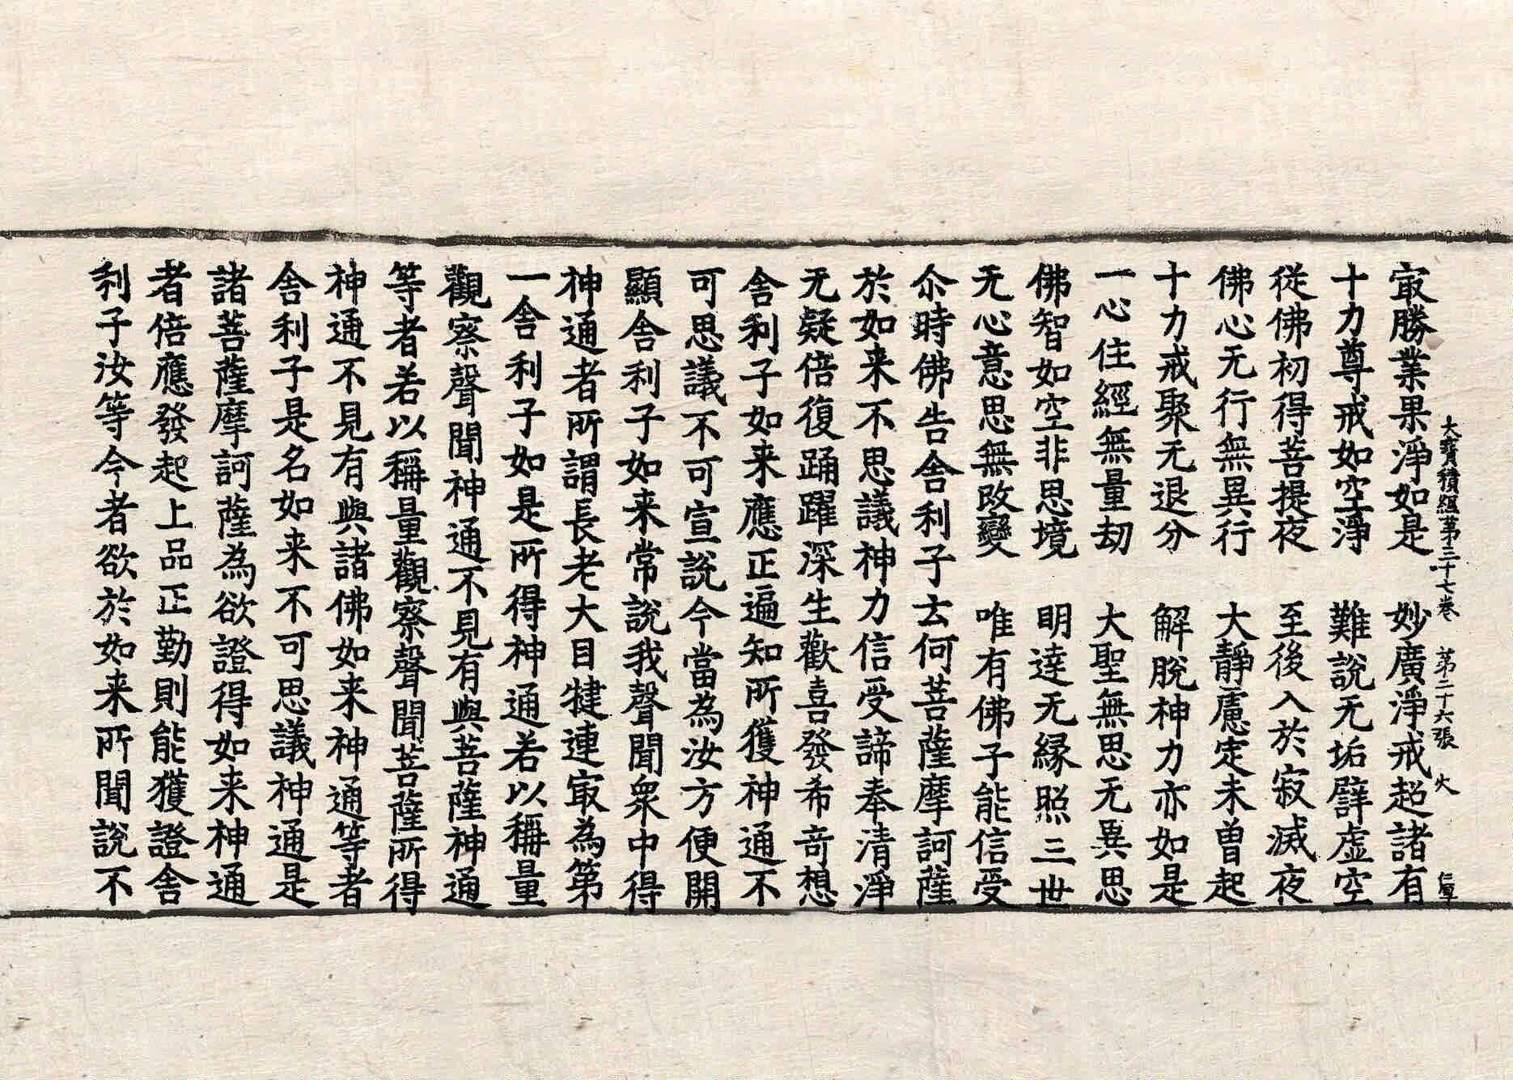 大寶積經第三十七卷　第二十六張　火
㝡勝業果淨如是　妙廣淨戒超諸有
十力尊戒如空淨　難說无垢辟虛空
從佛初得菩提夜　至後入於寂滅夜
佛心无行無異行　大靜慮定未曽起
十力戒聚无退分　解脫神力亦如是
一心住經無量劫　大聖無思无異思
佛智如空非思境　明達无縁照三世
无心意思無改變　唯有佛子能信受
尒時佛告舍利子云何菩薩摩訶薩
於如来不思議神力信受諦奉清淨
无疑倍復踊躍深生歡喜發希奇想
舍利子如来應正遍知所獲神通不
可思議不可宣說今當為汝方便開
顯舍利子如来常說我聲聞眾中得
神通者所謂長老大目犍連㝡為第
一舍利子如是所得神通若以稱量
觀察聲聞神通不見有與菩薩神通
等者若以稱量觀察聲聞菩薩所得
神通不見有與諸佛如来神通等者
舍利子是名如来不可思議神通是
諸菩薩摩訶薩為欲證得如来神通
者倍應發起上品正勤則能獲證舍
利子汝等今者欲於如来所聞說不